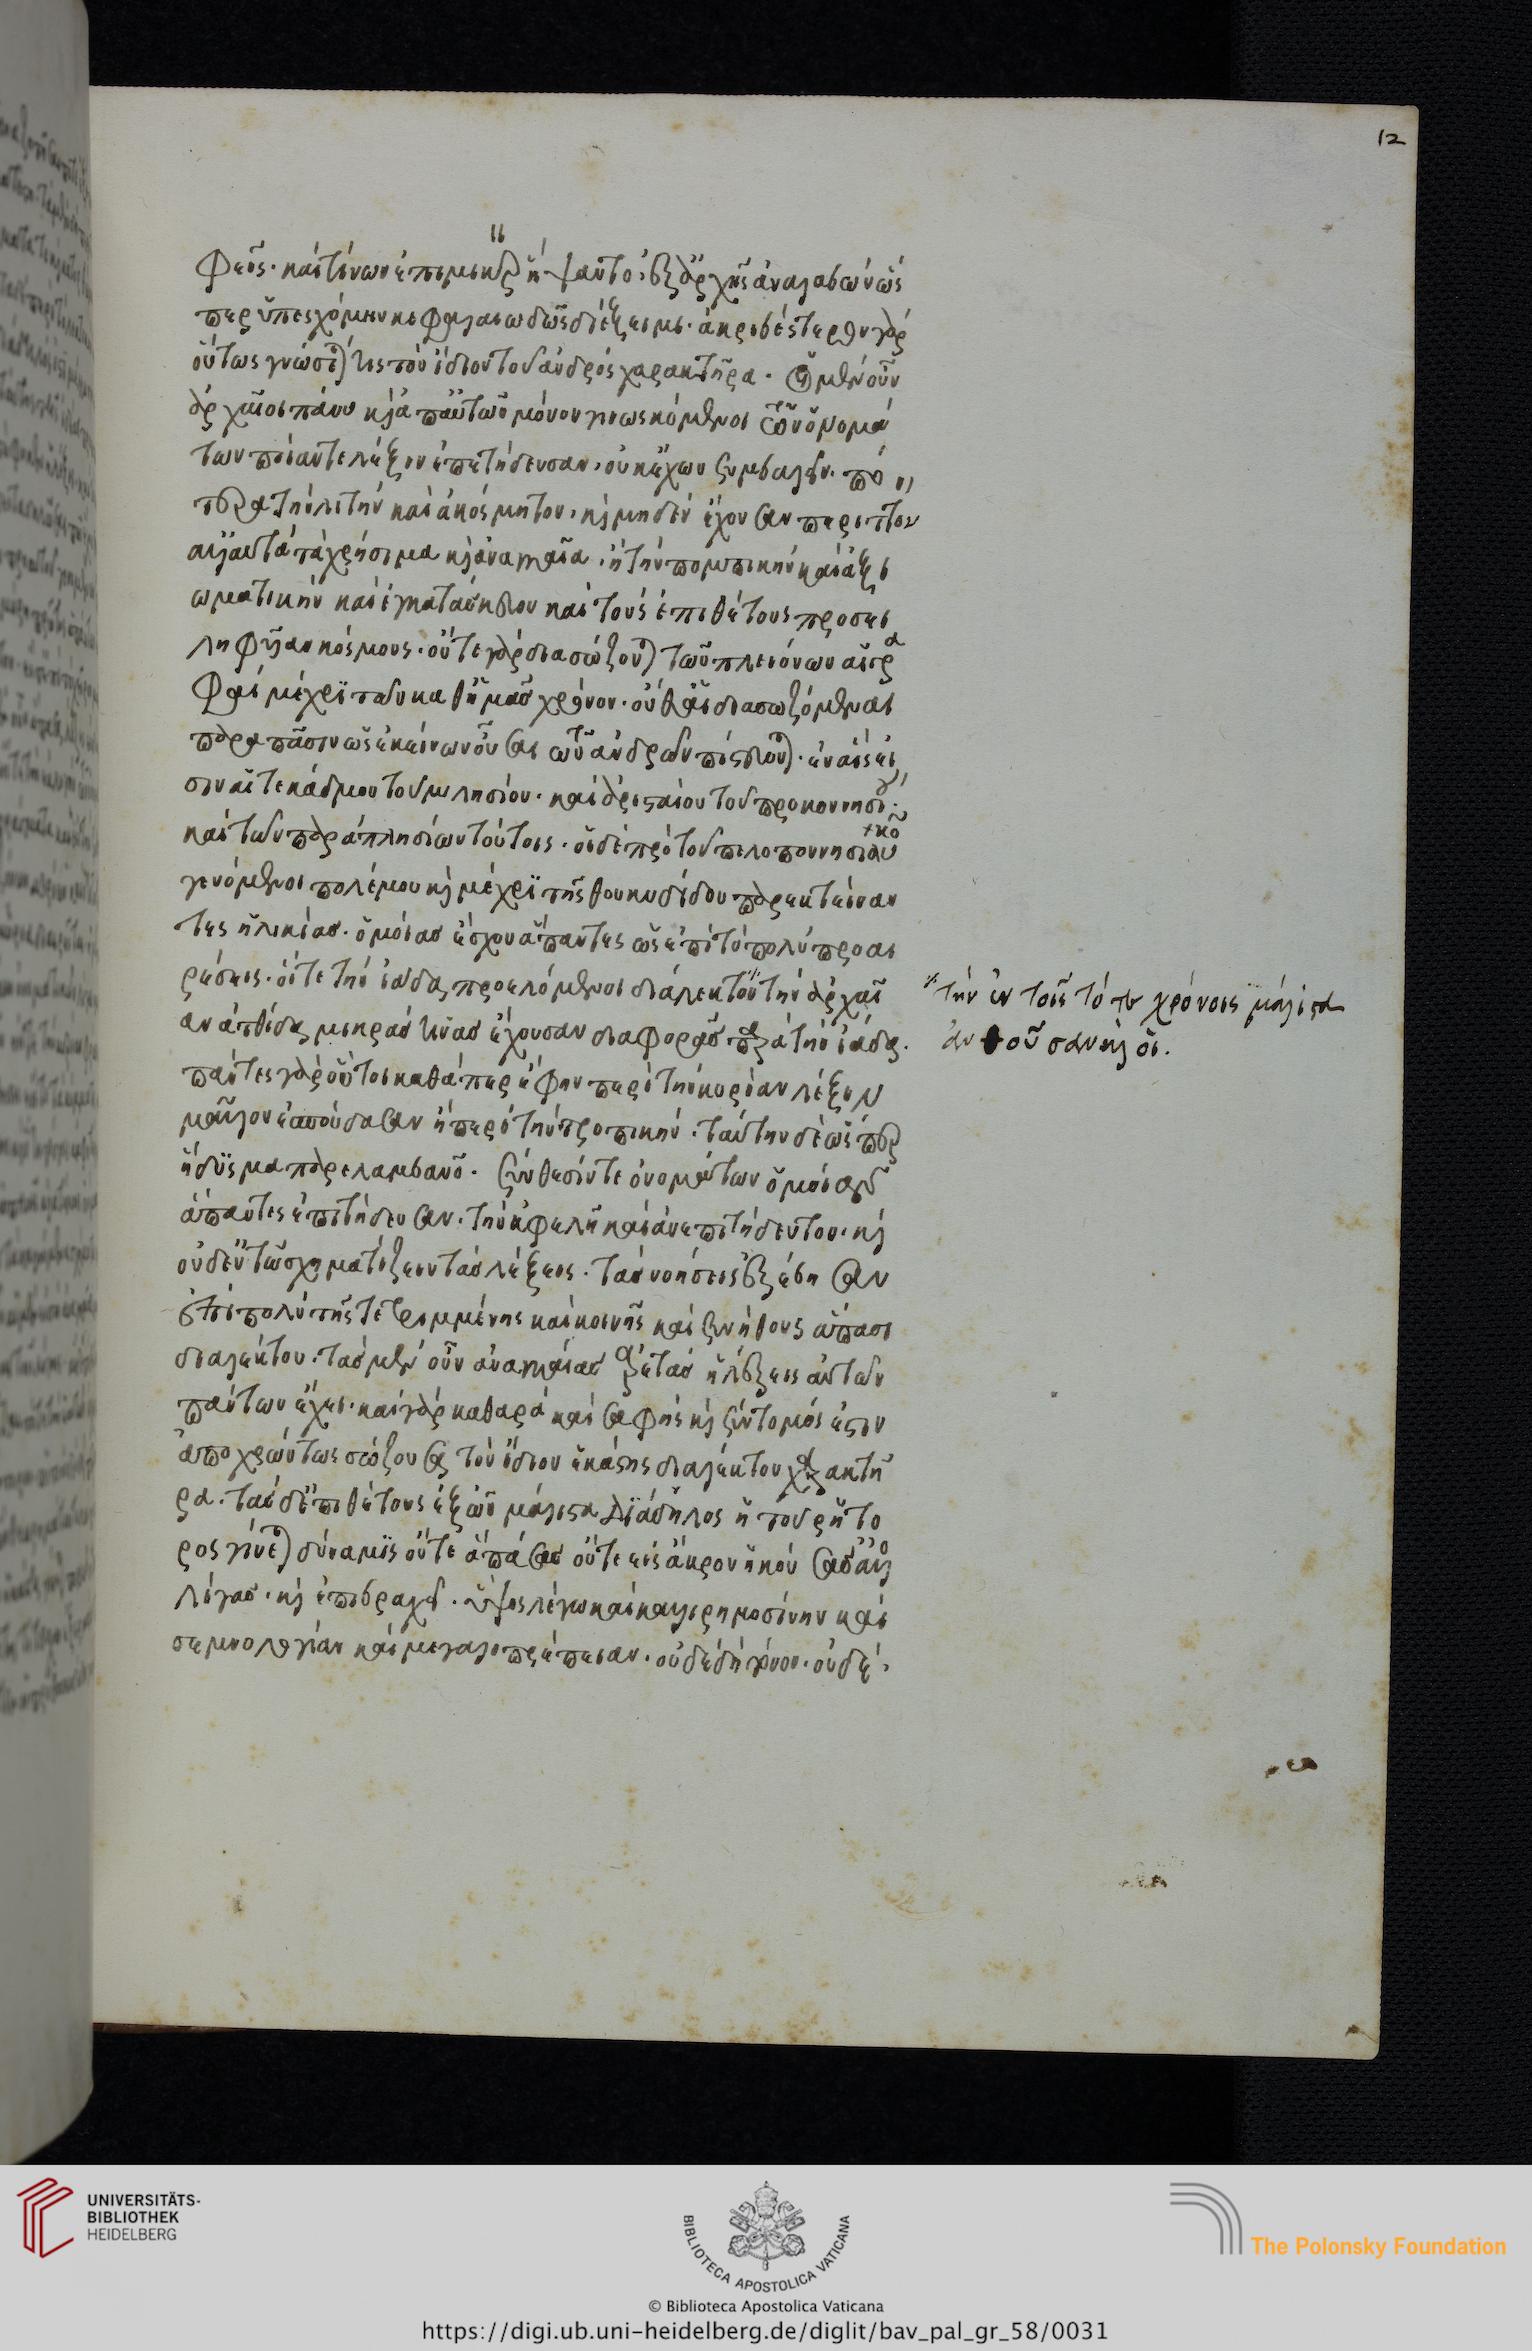 φεῖς· καὶ τίνων ἐπιμεληθεὶς ἥψατο· ἐξ ἀρχῆς ἀναλαβὼν ὥσ
περ ὑπεσχόμην κεφαλαιωδῶς διέξειμι· ἀκριβέστερον γὰρ
οὕτως γνώσεται τις τὸν ἴδιον τοῦ ἀνδρὸς χαρακτῆρα. οἱ μὲν οὖν
ἀρχαῖοι πάνυ καὶ ἀπαὐτῶν μόνον γινωσκόμενοι τῶν ὀνομά
των ποίαν τε λέξιν ἐπετήδευσαν, οὐκ ἔχων συμβαλεῖν· πό
τερα τὴν λιτὴν καὶ ἀκόσμητον, καὶ μηδὲν ἔχουσαν περιττὸν
ἀλλαὐτὰ τὰ χρήσιμα καὶ ἀναγκαῖα· ἢ τὴν πομπικὴν καὶ ἀξι
ωματικὴν καὶ ἐγκατάσκευον καὶ τοὺς ἐπιθέτους προσει
ληφυῖαν κόσμους· οὔτε γὰρ διασώζονται τῶν πλειόνων αἱ γρα
φαὶ μέχρϊ τῶν καθ' ἡμᾶς χρόνον· οὔθ' αἱ διασωζόμεναι
παρὰ πᾶσιν ὡς ἐκείνων οὖσαι τῶν ἀνδρῶν πιστεύονται· ἐν αἷς εἰ
σιν αἵ τε κάδμου τοῦ μιλησίου· καὶ ἀρισταίου τοῦ προκοννησίου·
καὶ τῶν παραπλησίων τούτοις· οἱ δὲ πρὸ τοῦ πελοποννησιακοῦ
γενόμενοι πολέμου καὶ μέχρϊ τῆς θουκυδίδου παρεκτείναν
τες ἡλικίας· ὁμοίας ἔσχον ἅπαντες ὡς ἐπὶ τὸ πολὺ προαι
ρέσεις· οἵ τε τὴν ἰάδα προελόμενοι διάλεκτον τὴν ἀρχαῖ
αν ἀτθίδα μικράς τινας ἔχουσαν διαφορὰς παρὰ τὴν ἰάδα.
πάντες γὰρ οὗτοι καθάπερ ἔφην περὶ τὴν κυρίαν λέξιν
μᾶλλον ἐσπούδασαν ἢ περὶ τὴν τροπικήν· ταύτην δὲ ὥσπερ
ἥδυσμα παρελάμβανον. σύνθεσίν τε ὀνομάτων ὁμοίαν
ἅπαντες ἐπιτήδευσαν· τὴν ἀφελῆ καὶ ἀνεπιτήδευτον· καὶ
οὐδ' ἐν τῶ σχηματίζειν τὰς λέξεις· τὰς νοήσεις ἐξέβησαν
ἐπιπολὺ τῆς τετριμμένης καὶ κοινῆς καὶ συνήθους ἅπασι
διαλέκτου· τὰς μὲν οὖν ἀναγκαίας ἀρετὰς ἡ λέξεις αὐτῶν
πάντων ἔχει· καὶ γὰρ καθαρὰ καὶ σαφὴς καὶ σύντομός ἐστιν
ἀποχρώντως σώζουσα τὸν ἴδιον ἑκάστης διαλέκτου χαρακτῆ
ρα. τὰς δ' ἐπιθέτους ἐξ ὧν μάλιστα διάδηλος ἡ τοῦ ῥήτο
ρος γίνεται δύναμϊς οὔτε ἁπάσας οὔτε εἰς ἄκρον ἡκούσας ἀλλ' ὀ
λίγας· καὶ ἐπιβραχὺ· ὕψος λέγω καὶ καλλιρημοσύνην καὶ
σεμνολογίαν καὶ μεγαλοπρέπειαν· οὐδὲ δὴ τόνον· οὐδὲ·
τὴν ἐν τοῖς τότε χρόνοις μάλιστα
ἀνθοῦσαν καὶ οἱ.
12
UNIVERSITÄTS-
BIBLIOTHEK
HEIDELBERG
BIBLIOTECA APOSTOLICA VATICANA
The Polonsky Foundation
© Biblioteca Apostolica Vaticana
https://digi.ub.uni-heidelberg.de/diglit/bav_pal_gr_58/0031